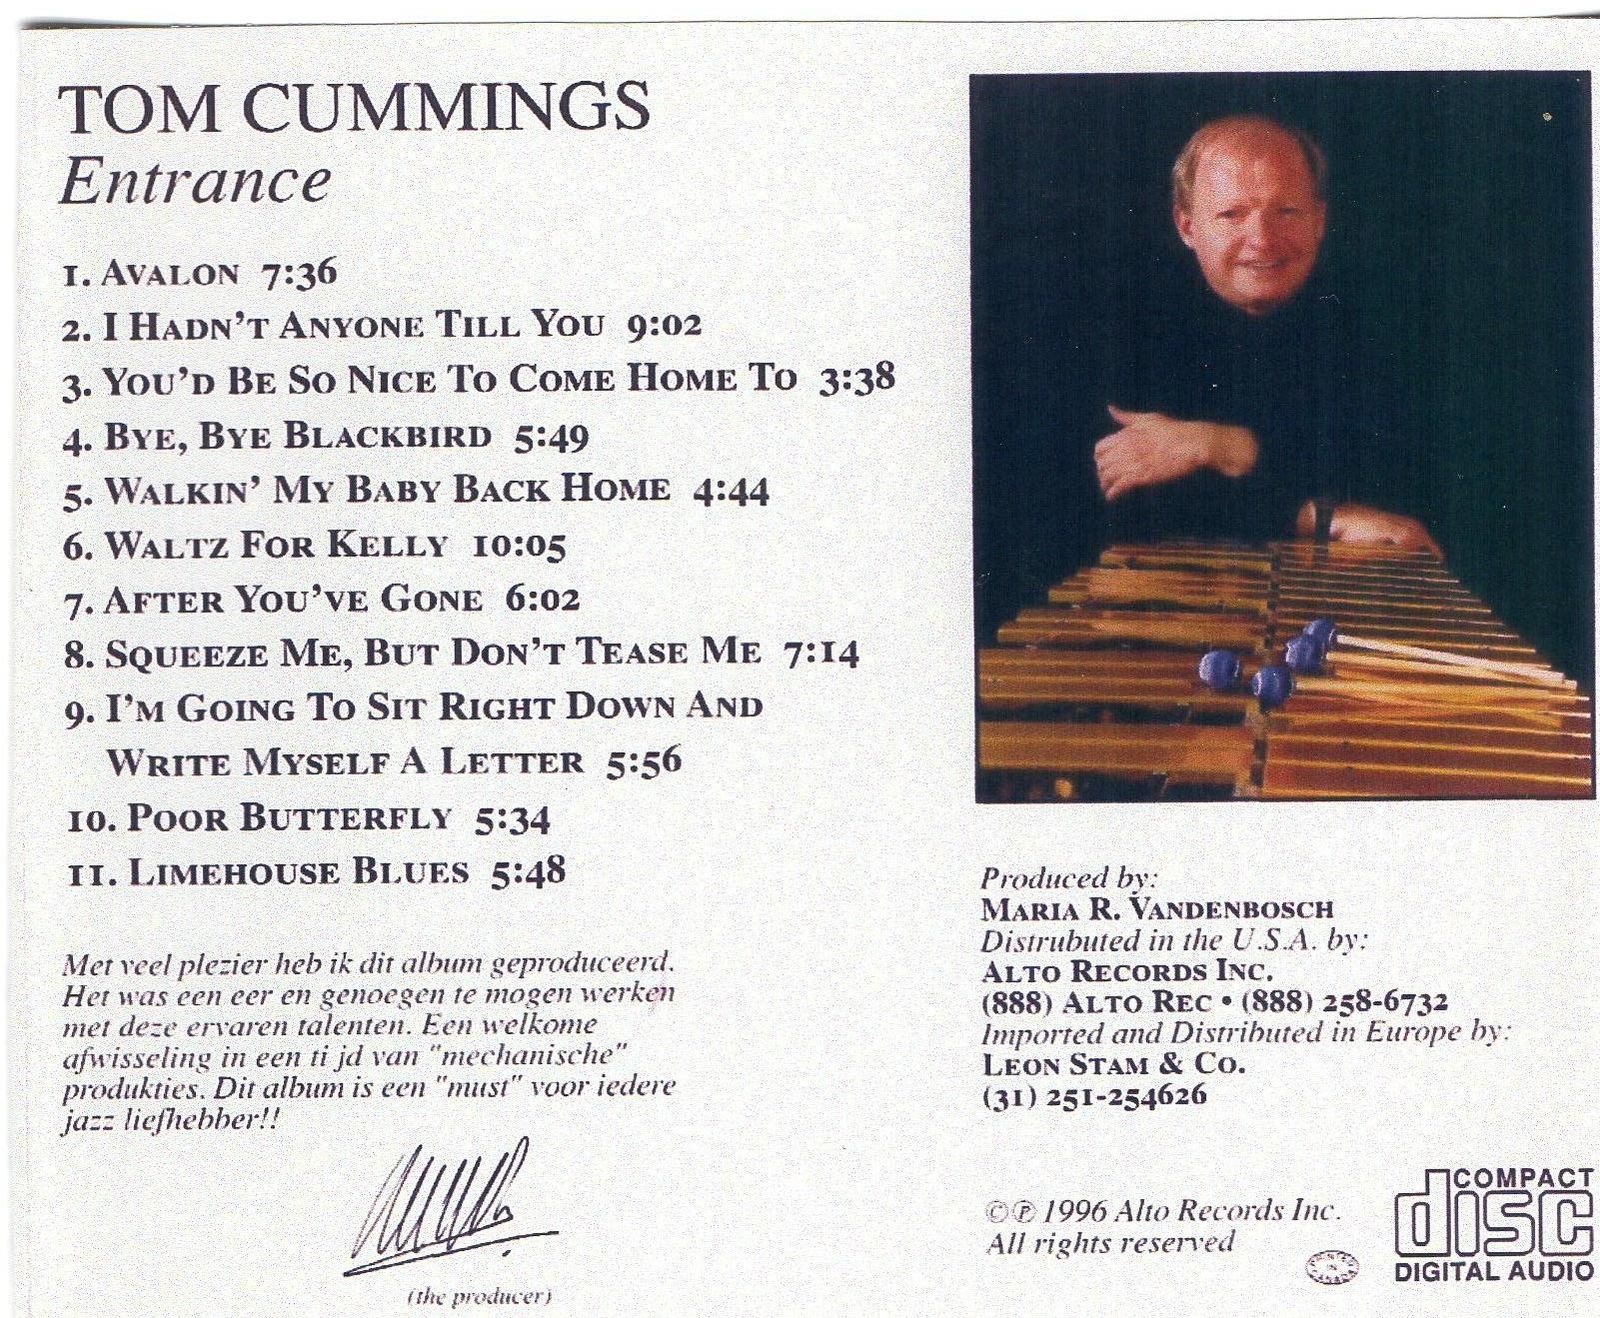 TOM CUMMINGS
Entrance
1. AVALON 7:36
2. I HADN'T ANYONE TILL YOU 9:02
3. YOU'D BE SO NICE TO COME HOME TO 3:38
4. BYE, BYE BLACKBIRD 5:49
5. WALKIN' MY BABY BACK HOME 4:44
6. WALTZ FOR KELLY 10:05
7. AFTER YOU'VE GONE 6:02
8. SQUEEZE ME, BUT DON'T TEASE ME 7:14
9. I'M GOING TO SIT RIGHT DOWN AND
WRITE MYSELF A LETTER 5:56
10. POOR BUTTERFLY 5:34
11. LIMEHOUSE BLUES 5:48
Met veel plezier heb ik dit album geproduceerd.
Het was een eer en genoegen te mogen werken
met deze ervaren talenten. Een welkome
afwisseling in een ti jd van "mechanische"
produkties. Dit album is een "must" voor iedere
jazz liefhebber!!
(the producer)
Produced by:
MARIA R. VANDENBOSCH
Distrubuted in the U.S.A. by:
ALTO RECORDS INC.
(888) ALTO REC • (888) 258-6732
Imported and Distributed in Europe by:
LEON STAM & CO.
(31) 251-254626
©℗ 1996 Alto Records Inc.
All rights reserved
PRINTED IN CANADA
COMPACT
disc
DIGITAL AUDIO